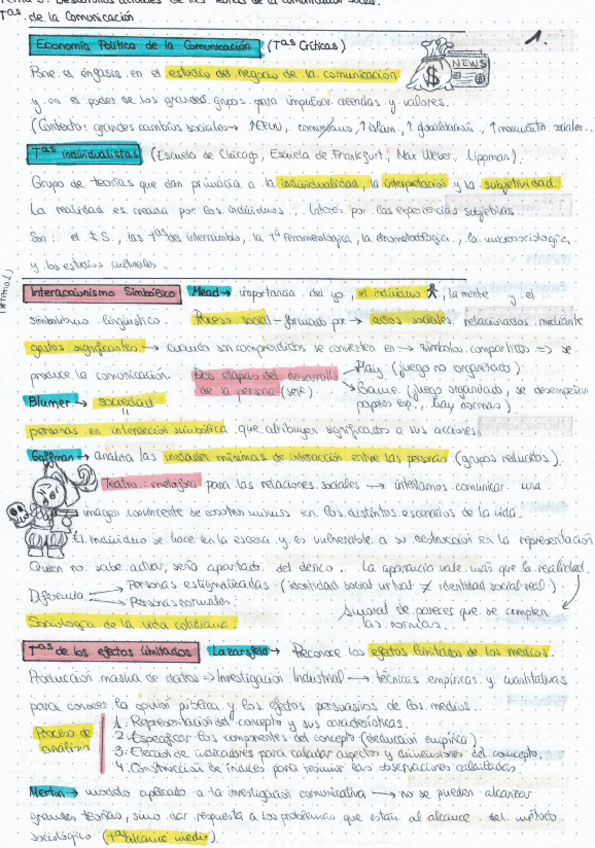 Tema 3: Desarrollos actuales de las Teorías de la comunicación social.
Tas. de la Comunicación
1.
Economía Política de la Comunicación (Tas Críticas)
NEWS
$
Pone el énfasis en el estudio del negocio de la comunicación
y en el poder de los grandes grupos para impulsar agendas y valores.
(Contexto: grandes cambios sociales → , comunismo, ↑ islam, ↑ globalización, ↑ movimientos sociales...
Tas individualistas (Escuela de Chicago, Escuela de Frankfurt, Max Weber, Lippman).
Grupo de teorías que dan primacía a la individualidad, la interpretación y la subjetividad.
La realidad es creada por los individuos... Interés por las experiencias subjetivas.
Son: el I.S., las Tas del intercambio, la Ta fenomenológica, la etnometodología, la microsociología
y los estudios culturales.
Interaccionismo Simbólico Mead → importancia del yo, el individuo, la mente y el
simbolismo lingüístico. Proceso social - formado por → actos sociales relacionados mediante
gestos significantes → cuando son comprendidos se convierten en → símbolos compartidos => se
produce la comunicación. Dos etapas del desarrollo de la persona (self)
Play (juego no organizado)
Game (juego organizado, se desempeñan papeles esp., hay normas)
Blumer → sociedad
=
personas en interacción simbólica que atribuyen significados a sus acciones
Goffman → analiza las unidades mínimas de interacción entre las personas (grupos reducidos).
Teatro: metáfora para las relaciones sociales → intentamos comunicar una
imagen convincente de nosotros mismos en los distintos escenarios de la vida.
El individuo se hace en la escena y es vulnerable a su destrucción en la representación
Quien no sabe actuar, será apartado del elenco.. La apariencia vale más que la realidad.
Diferencia
Personas estigmatizadas (identidad social virtual ≠ identidad social real).
Personas normales.
Su moral de parecer que se cumplen las normas.
Sociología de la vida cotidiana
Tas de los efectos limitados Lazarsfeld → Reconoce los efectos limitados de los medios.
Producción masiva de datos => Investigación Industrial → técnicas empíricas y cuantitativas
para conocer la opinión pública y los efectos persuasivos de los medios.
Proceso de análisis
1. Representación del concepto y sus características.
2. Especificar los componentes del concepto (deducción empírica)
3. Elección de indicadores para calcular aspectos y dimensiones del concepto.
4. Construcción de índices para resumir las observaciones calculadas.
Merton → modelo aplicado a la investigación comunicativa → no se pueden alcanzar
grandes teorías, sino dar respuesta a los problemas que están al alcance del método
sociológico (Tas alcance medio).